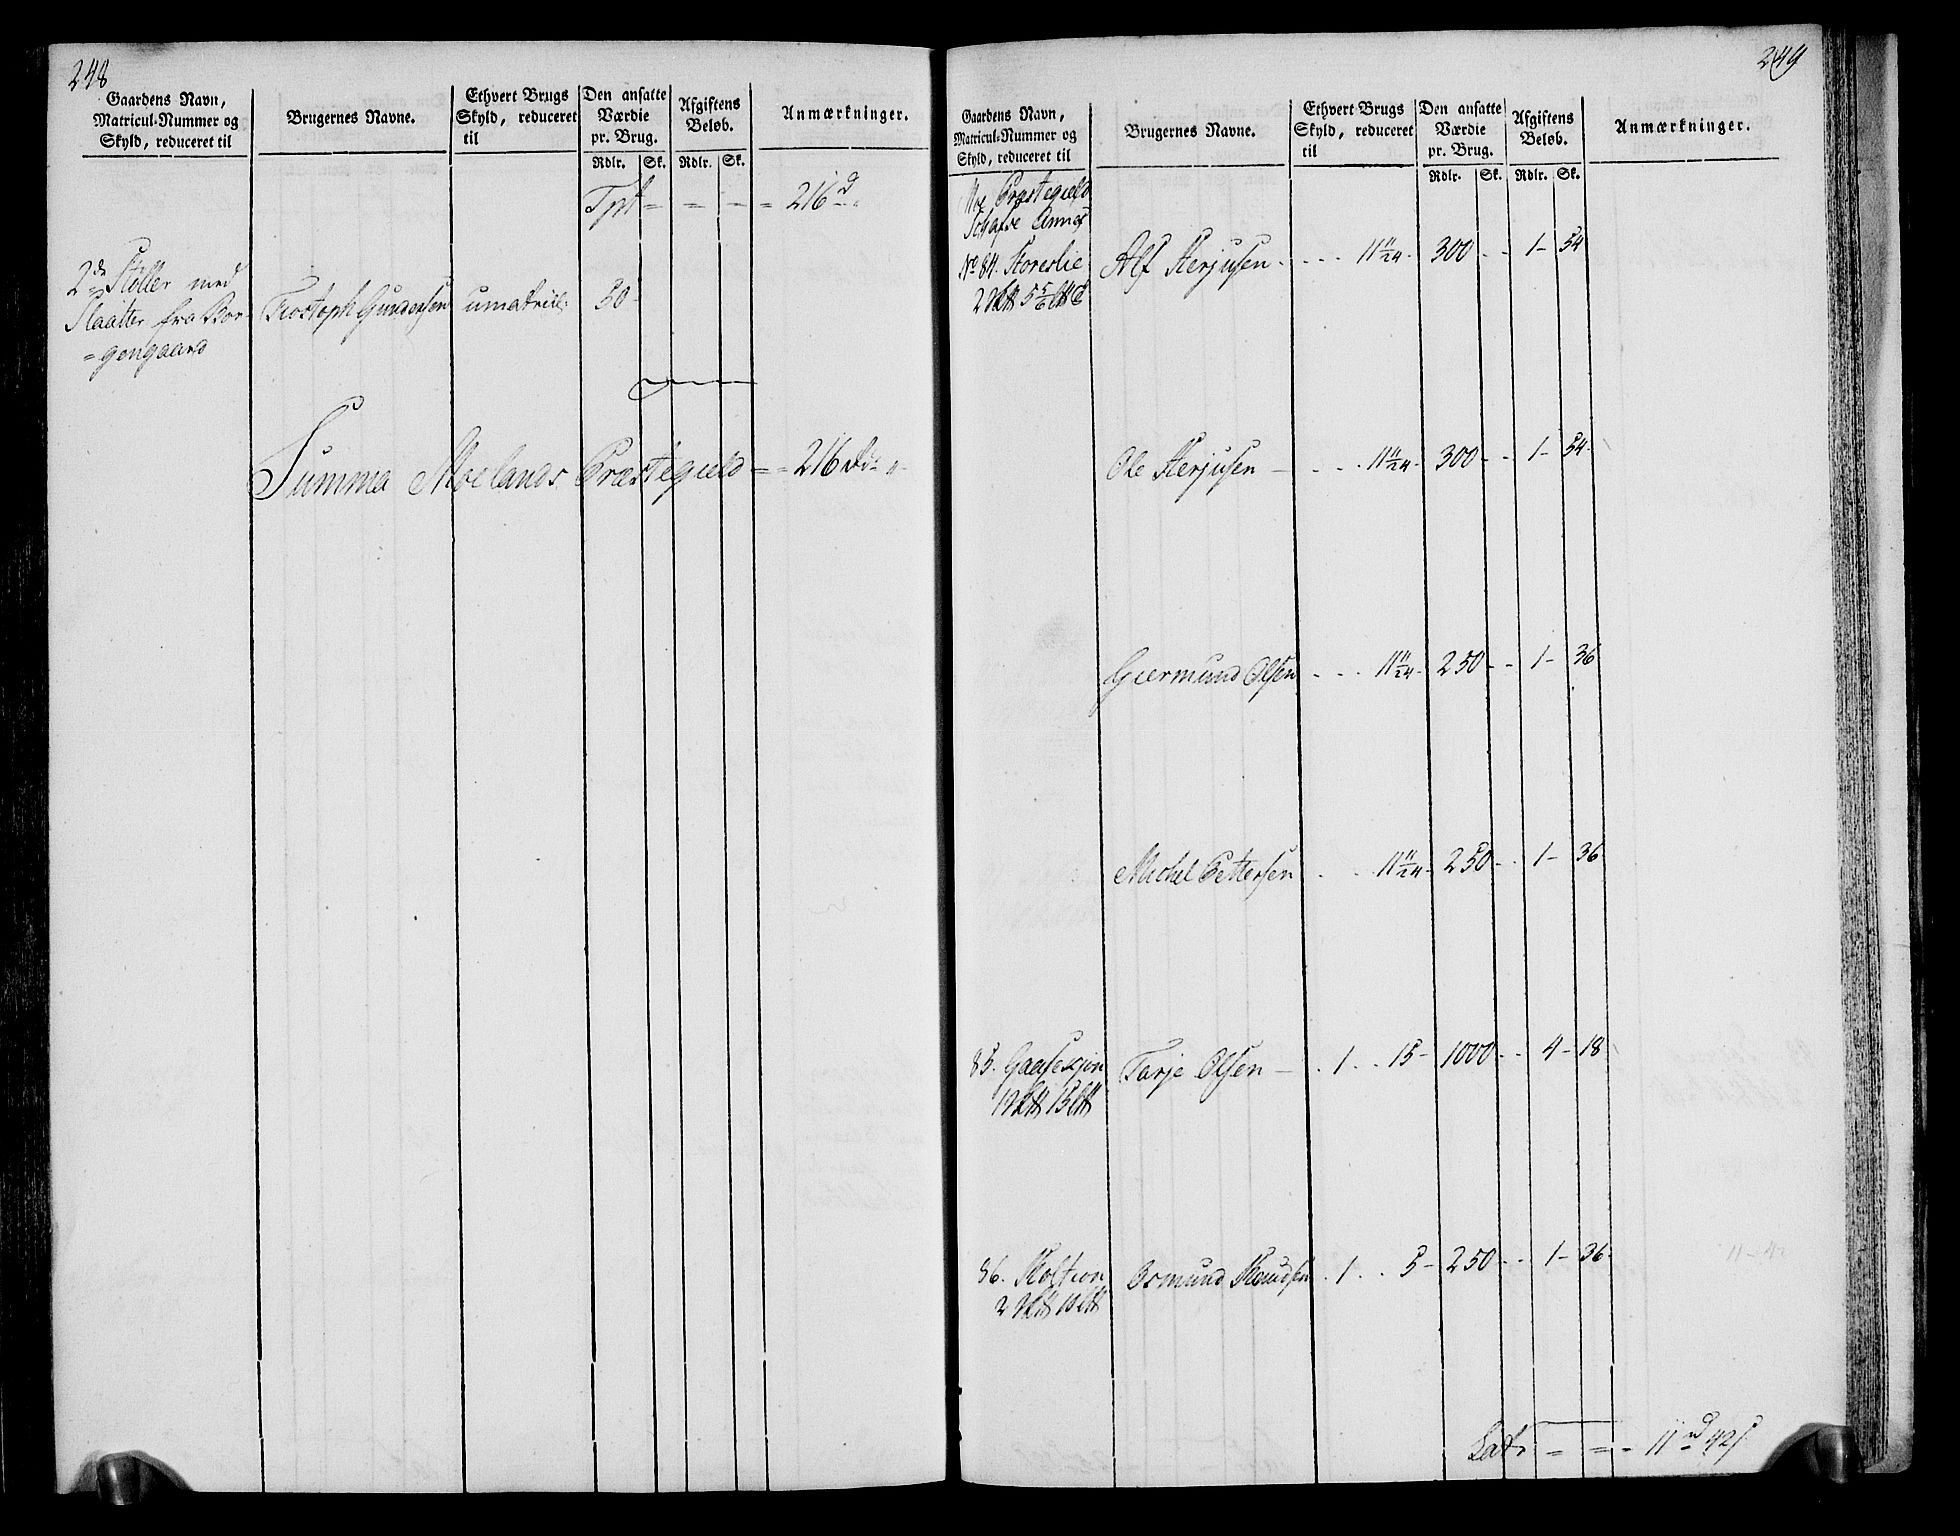 248
Gaardens Navn,
Matricul-Nummer og
Skyld, reduceret til
Brugernes Navne.
Ethvert Brugs
Skyld, reduceret
til
Den ansatte
Værdie
pr. Brug.
Rdlr. Sk.
Afgiftens
Beløb.
Rdlr. Sk.
Anmærkninger.
Tpt = = - = 216 d
2de Støller med
Slaatter fra
= gengaard
Gundersen umatricul: 50-
Summa Moelands Præstegield = = 216 "-
249
Gaardens Navn,
Matricul-Nummer og
Skyld, reduceret til
Brugernes Navne.
Ethvert Brugs
Skyld, reduceret
til
Den ansatte
Værdie
pr. Brug.
Rdlr. Sk.
Afgiftens
Beløb.
Rdlr. Sk.
Anmærkninger.
Moe Præstegield
Schafse Annex
No 84. Storeslie Alf Terjusen - 11 11/24 - 300 - - 1 - 54
Ole Terjusen - 11 11/24 - 300 - - 1 - 54
Giermund Olsen - 11 11/24 - 250 - - 1 - 36
Michel Pettersen 11 11/24 - 250 - - 1 - 36
85. Gaasekjon Tarje Olsen - 1 15 - 1000 - - 4 - 18
86. Osmund Knudsen 1 5 - 250 - - 1 - 36
Lats = = - 11 rd 42 s